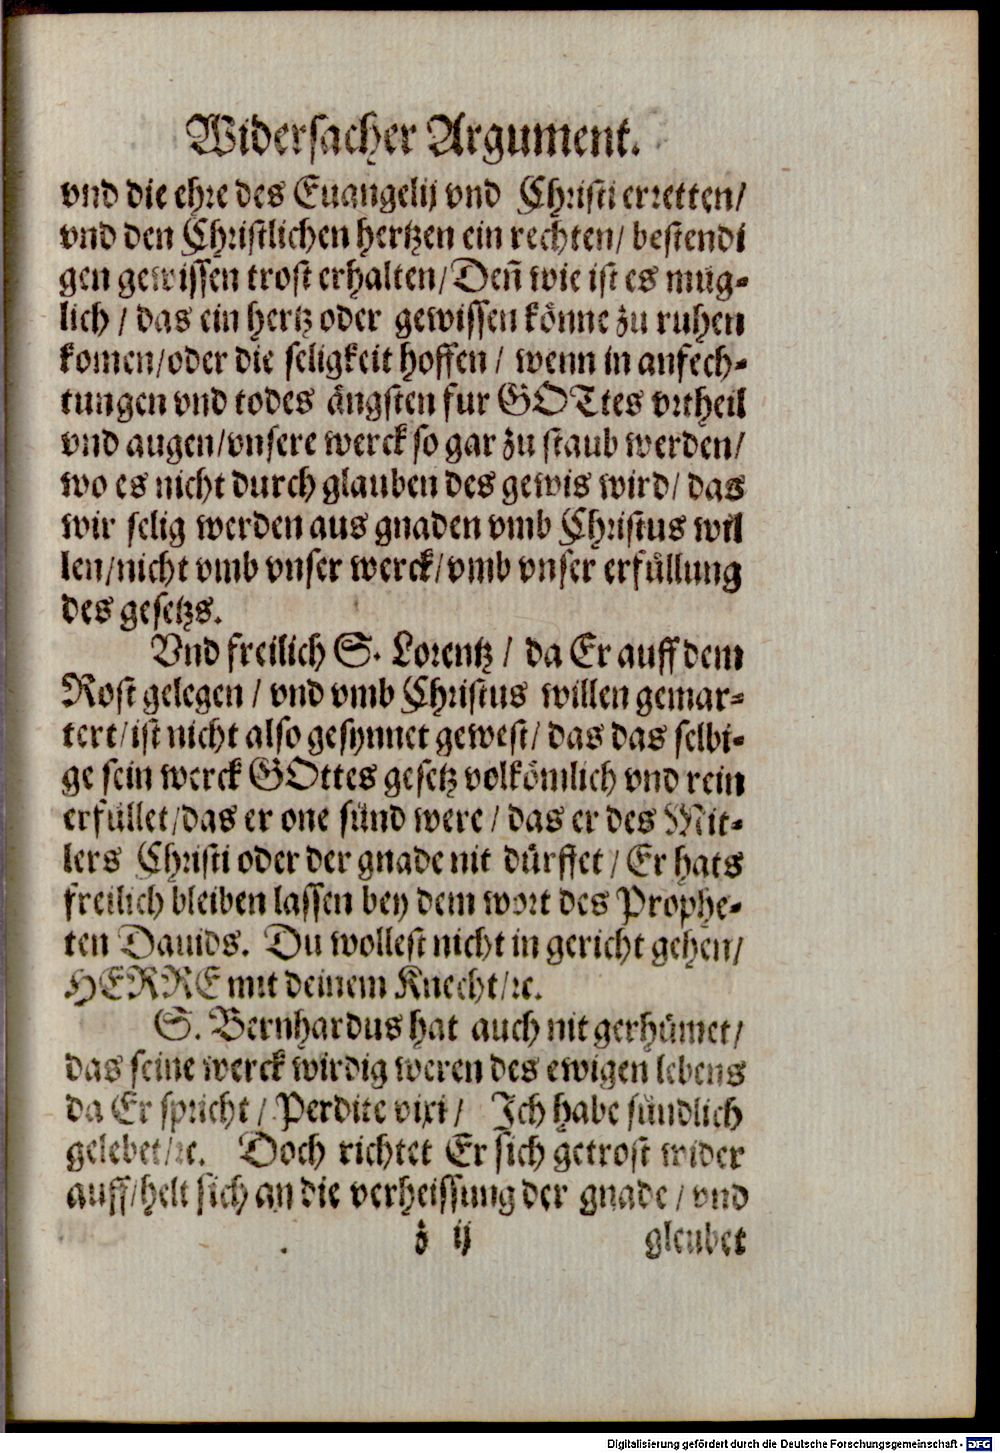 Widersacher Argument.
vnd die ehre des Euangelij vnd Christi erretten/
vnd den Christlichen hertzen ein rechten/ bestendi
gen gewissen trost erhalten/ Deñ wie ist es müg-
lich / das ein hertz oder gewissen könne zu ruhen
komen/oder die seligkeit hoffen / wenn in anfech-
tungen vnd todes ängsten fur GOTtes vrtheil
vnd augen/vnsere werck so gar zu staub werden/
wo es nicht durch glauben des gewis wird/ das
wir selig werden aus gnaden vmb Christus wil
len/nicht vmb vnser werck/vmb vnser erfüllung
des gesetzs.
Vnd freilich S. Lorentz / da Er auff dem
Rost gelegen / vnd vmb Christus willen gemar-
tert/ist nicht also gesynnet gewest/ das das selbi-
ge sein werck GOttes gesetz volkömlich vnd rein
erfüllet/das er one sünd were / das er des Mit-
lers Christi oder der gnade nit dürffet / Er hats
freilich bleiben lassen bey dem wort des Prophe-
ten Dauids. Du wollest nicht in gericht gehen/
HERRE mit deinem Knecht/ꝛc.
S. Bernhardus hat auch nit gerhümet/
das seine werck wirdig weren des ewigen lebens
da Er spricht / Perdite vixi / Ich habe sündlich
gelebet/ꝛc. Doch richtet Er sich getrost wider
auff/helt sich an die verheissung der gnade / vnd
z ij gleubet
Digitalisierung gefördert durch die Deutsche Forschungsgemeinschaft - DFG